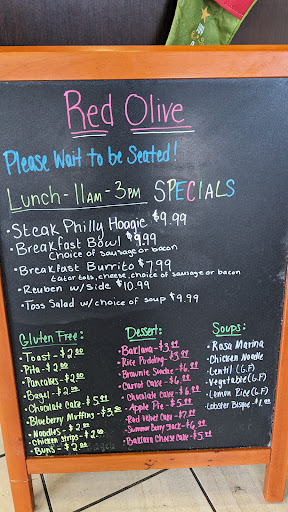 Red Olive
Please Wait to be Seated!
Lunch - 11AM - 3PM SPECIALS
• Steak Philly Hoagie $9.99
• Breakfast Bowl $9.99
Choice of sausage or bacon
• Breakfast Burrito $7.99
tator tots, cheese, choice of sausage or bacon
• Reuben w/side $10.99
• Toss Salad w/choice of soup $9.99
Gluten Free:
• Toast - $2.00
• Pita - $2.00
• Pancakes - $2.00
• Bagel - $2.00
• Chocolate Cake - $5.00
• Blueberry Muffins - $3.50
• Noodles - $2.00
• Chicken Strips - $2.00
• Buns - $2.00
Dessert:
• Baklava - $3.99
• Rice Pudding - $3.99
• Brownie Smores - $6.99
• Carrot Cake - $6.99
• Chocolate Cake - $6.99
• Apple Pie - $5.99
• Red Velvet Cake - $7.99
• Summer Berry Stack - $6.99
• Baklava Cheese Cake - $5.99
Soups:
• Rosa Marina
• Chicken Noodle
• Lentil (G.F)
• Vegetable (G.F)
• Lemon Rice (G.F)
• Lobster Bisque